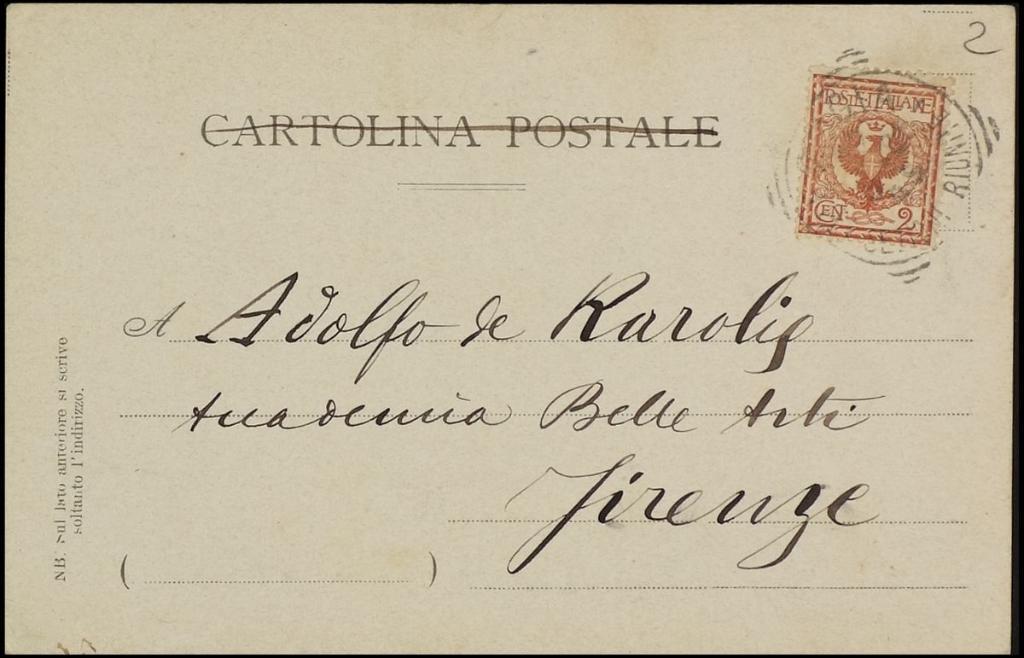 2
CARTOLINA POSTALE
POSTE·ITALIANE
CEN. 2
RIUNI
A Adolfo de Karolis
Accademia Belle Arti
Firenze
NB. Sul lato anteriore si scrive
soltanto l'indirizzo.
( )